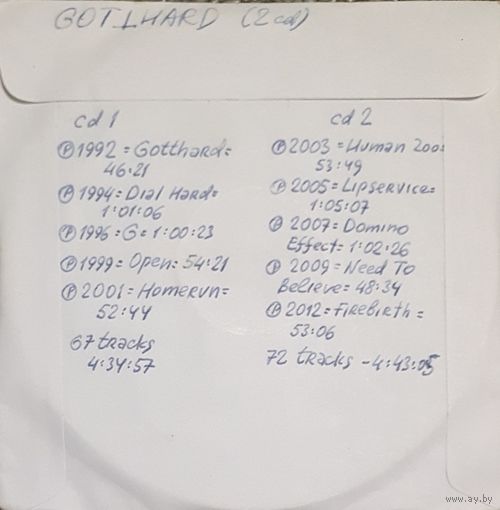 GOTTHARD (2cd)
cd 1
℗ 1992 = Gotthard =
46:21
℗ 1994 = Dial Hard =
1:01:06
℗ 1996 = G = 1:00:23
℗ 1999 = Open = 54:21
℗ 2001 = Homerun =
52:44
67 tracks
4:34:57
cd 2
℗ 2003 = Human Zoo =
53:49
℗ 2005 = Lipservice =
1:05:07
℗ 2007 = Domino
Effect = 1:02:26
℗ 2009 = Need To
Believe = 48:34
℗ 2012 = Firebirth =
53:06
72 tracks - 4:43:05
www.ay.by